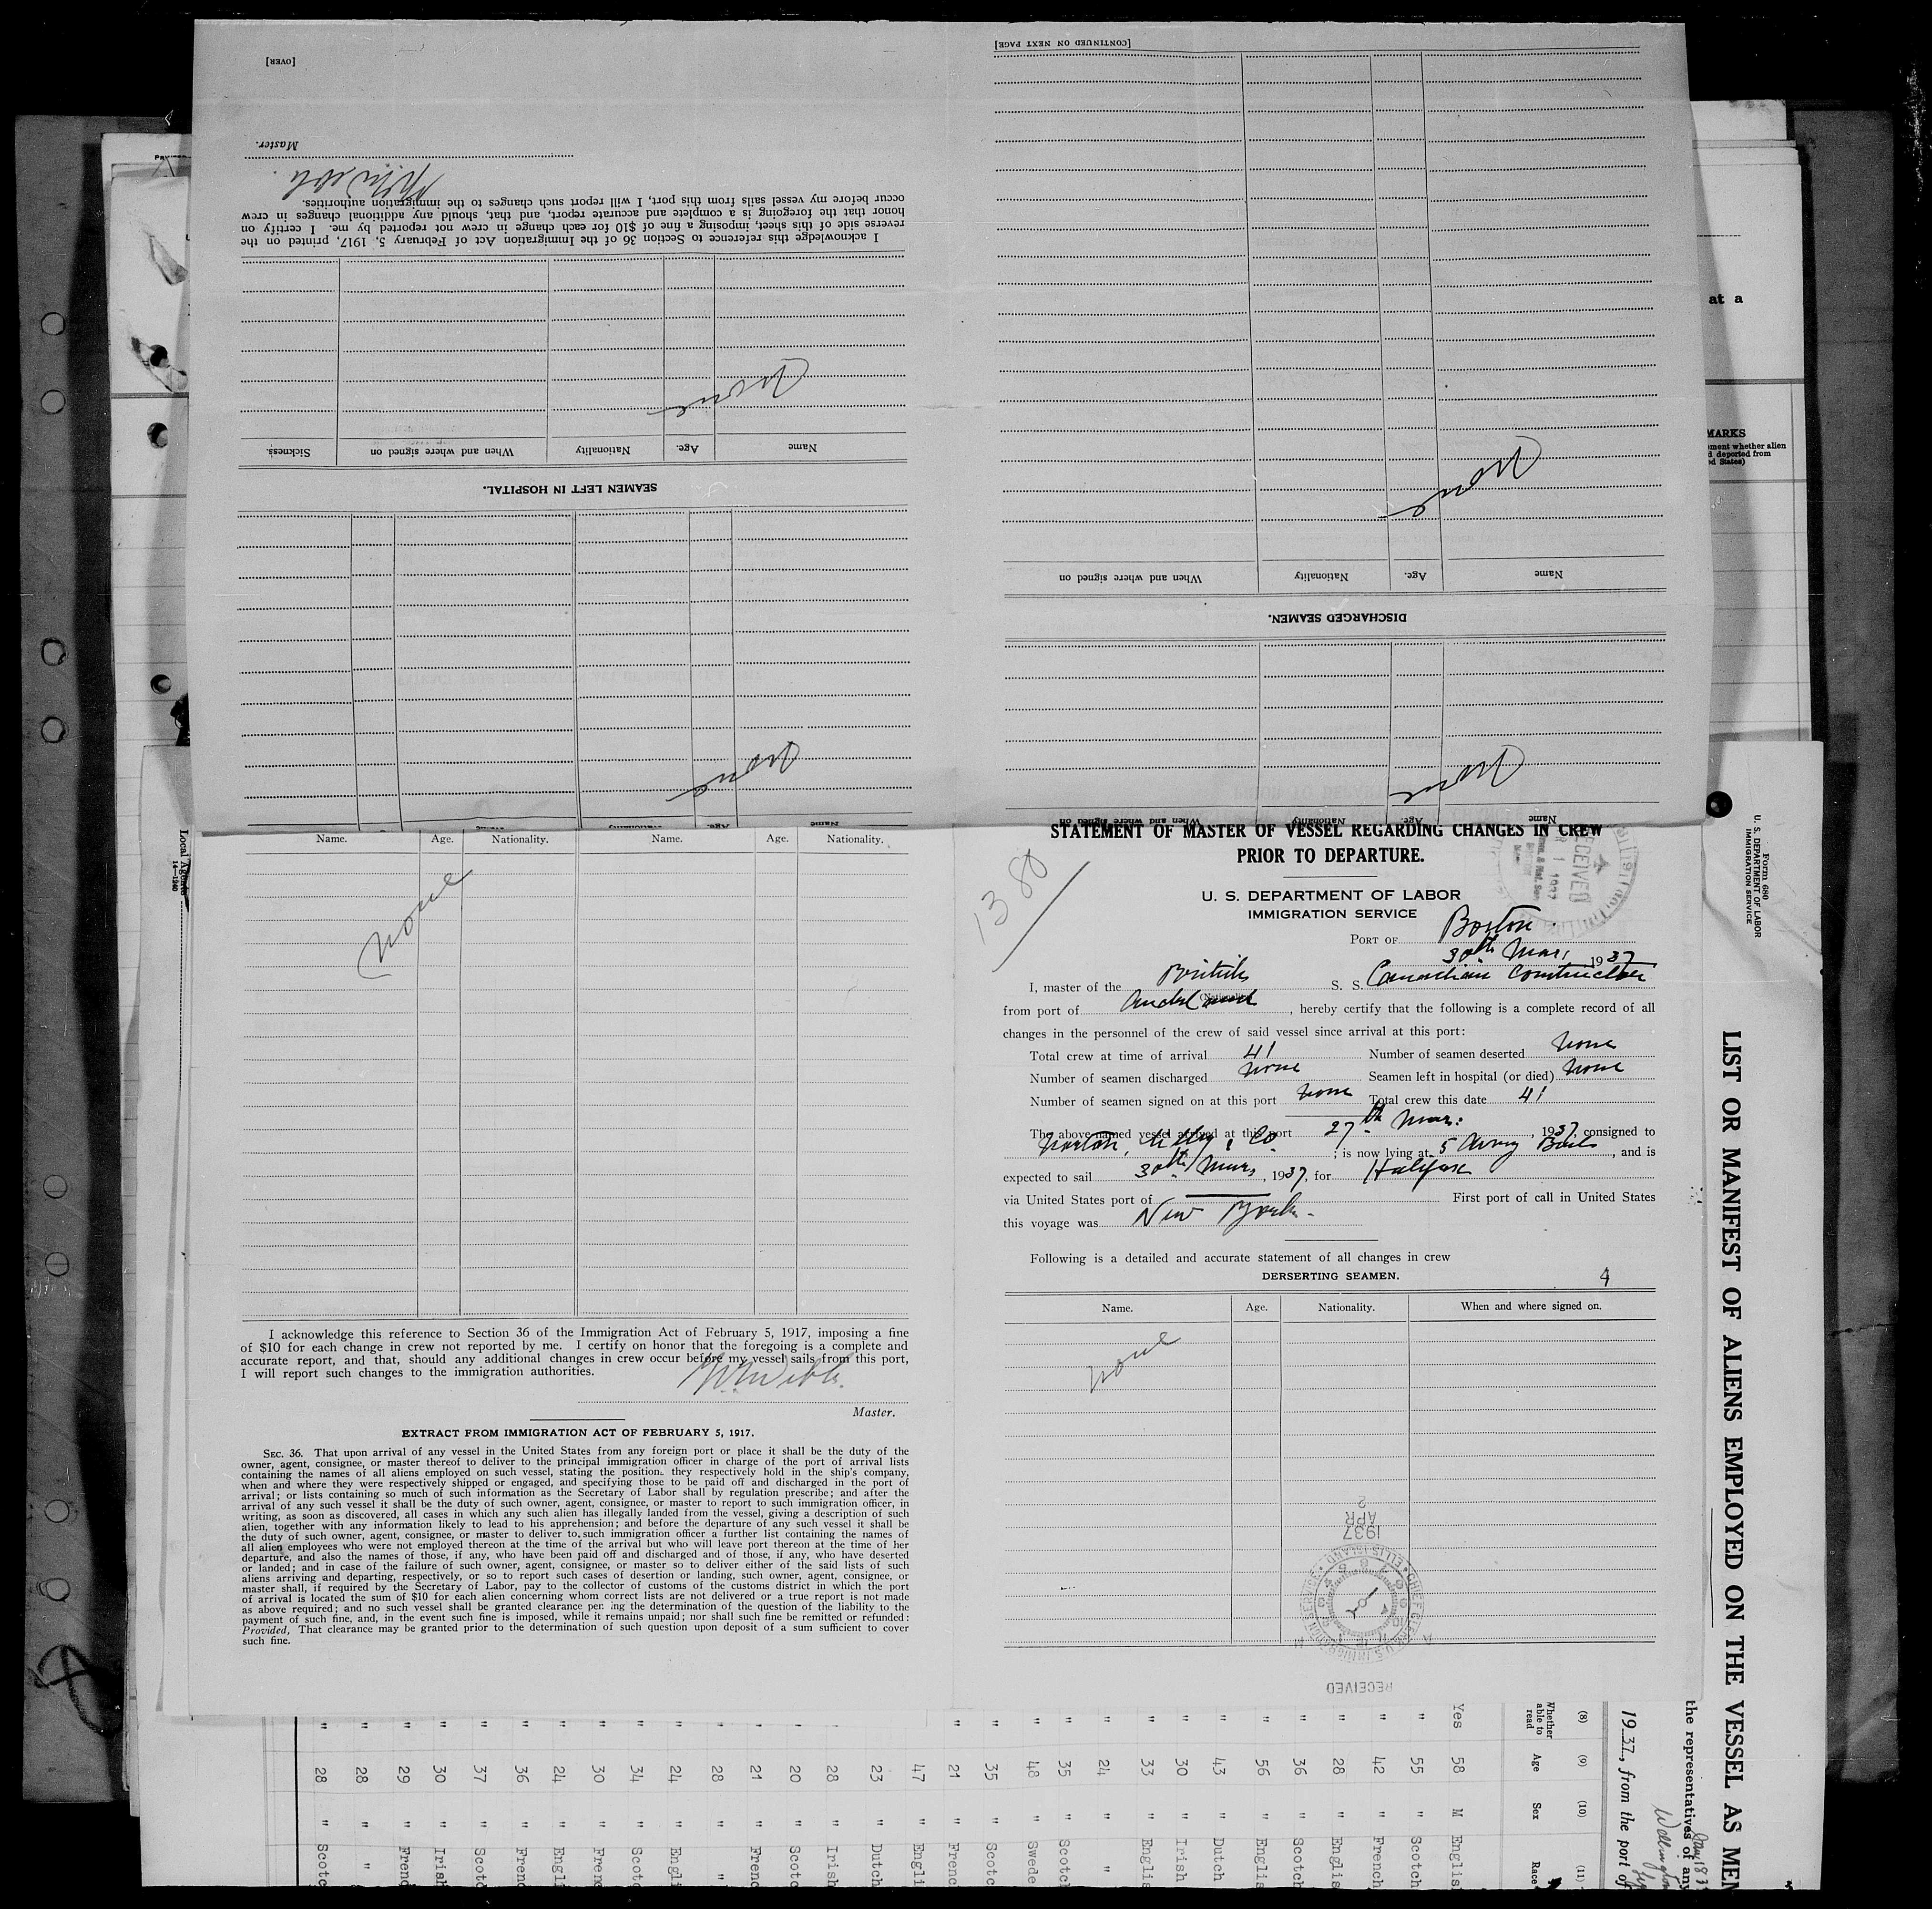 [OVER]
Master.
I acknowledge this reference to Section 36 of the Immigration Act of February 5, 1917, printed on the
reverse side of this sheet, imposing a fine of $10 for each change in crew not reported by me. I certify on
honor that the foregoing is a complete and accurate report, and that, should any additional changes in crew
occur before my vessel sails from this port, I will report such changes to the immigration authorities.
None
Name Age. Nationality When and where signed on Sickness.
SEAMEN LEFT IN HOSPITAL.
None
[CONTINUED ON NEXT PAGE]
None
Name Age. Nationality When and where signed on
DISCHARGED SEAMEN.
None
Name Age. Nationality When and where signed on
at a
MARKS
ement whether alien
d deported from
ed States)
Local Agents
14—1240
Name. Age. Nationality. Name. Age. Nationality.
None
I acknowledge this reference to Section 36 of the Immigration Act of February 5, 1917, imposing a fine
of $10 for each change in crew not reported by me. I certify on honor that the foregoing is a complete and
accurate report, and that, should any additional changes in crew occur before my vessel sails from this port,
I will report such changes to the immigration authorities.
Master.
EXTRACT FROM IMMIGRATION ACT OF FEBRUARY 5, 1917.
SEC. 36. That upon arrival of any vessel in the United States from any foreign port or place it shall be the duty of the
owner, agent, consignee, or master thereof to deliver to the principal immigration officer in charge of the port of arrival lists
containing the names of all aliens employed on such vessel, stating the position they respectively hold in the ship's company,
when and where they were respectively shipped or engaged, and specifying those to be paid off and discharged in the port of
arrival; or lists containing so much of such information as the Secretary of Labor shall by regulation prescribe; and after the
arrival of any such vessel it shall be the duty of such owner, agent, consignee, or master to report to such immigration officer, in
writing, as soon as discovered, all cases in which any such alien has illegally landed from the vessel, giving a description of such
alien, together with any information likely to lead to his apprehension; and before the departure of any such vessel it shall be
the duty of such owner, agent, consignee, or master to deliver to such immigration officer a further list containing the names of
all alien employees who were not employed thereon at the time of the arrival but who will leave port thereon at the time of her
departure, and also the names of those, if any, who have been paid off and discharged and of those, if any, who have deserted
or landed; and in case of the failure of such owner, agent, consignee, or master so to deliver either of the said lists of such
aliens arriving and departing, respectively, or so to report such cases of desertion or landing, such owner, agent, consignee, or
master shall, if required by the Secretary of Labor, pay to the collector of customs of the customs district in which the port
of arrival is located the sum of $10 for each alien concerning whom correct lists are not delivered or a true report is not made
as above required; and no such vessel shall be granted clearance pending the determination of the question of the liability to the
payment of such fine, and, in the event such fine is imposed, while it remains unpaid; nor shall such fine be remitted or refunded:
Provided, That clearance may be granted prior to the determination of such question upon deposit of a sum sufficient to cover
such fine.
STATEMENT OF MASTER OF VESSEL REGARDING CHANGES IN CREW
PRIOR TO DEPARTURE.
1380
U. S. DEPARTMENT OF LABOR
IMMIGRATION SERVICE
PORT OF Boston.
30th Mar. 1937
I, master of the British S. S. Canadian Constructor
from port of Auckland, hereby certify that the following is a complete record of all
changes in the personnel of the crew of said vessel since arrival at this port:
Total crew at time of arrival 41 Number of seamen deserted None
Number of seamen discharged None Seamen left in hospital (or died) None
Number of seamen signed on at this port None Total crew this date 41
The above named vessel arrived at this port 27th Mar: , 1937, consigned to
Norton, Lilly & Co ; is now lying at 5 Army Base, and is
expected to sail 30th Mar, 1937, for Halifax
via United States port of First port of call in United States
this voyage was New York.
Following is a detailed and accurate statement of all changes in crew
DERSERTING SEAMEN. 4
Name. Age. Nationality. When and where signed on.
None
2
APR
1937
CHIEF CLERK U.S. IMMIGRATION SERVICE ELLIS ISLAND
RECEIVED
Form 680
U. S. DEPARTMENT OF LABOR
IMMIGRATION SERVICE
LIST OR MANIFEST OF ALIENS EMPLOYED ON THE VESSEL AS MEM
the representatives of any
1937, from the port of
(8) (9) (10) (11)
Whether able to read Age Sex Race
Yes 58 M Englis
" 55 " Scotch
" 42 " French
" 28 " Englis
" 36 " Scotch
" 56 " Englis
" 43 " Dutch
" 30 " Irish
" 33 " Englis
" 24 " "
" 35 " Scotch
" 48 " Swede
" 35 " Scotc
" 21 " French
47 " Engli
" 23 " Dutch
" 28 " Irish
" 20 " Scotc
" 21 " Frenc
" 28 " "
" 24 " Engli
" 34 " Scotc
" 30 " Frenc
" 24 " Engli
" 36 " Frenc
" 37 " Scotc
" 30 " Irish
" 29 " Frenc
" 28 " "
" 28 " Scotc